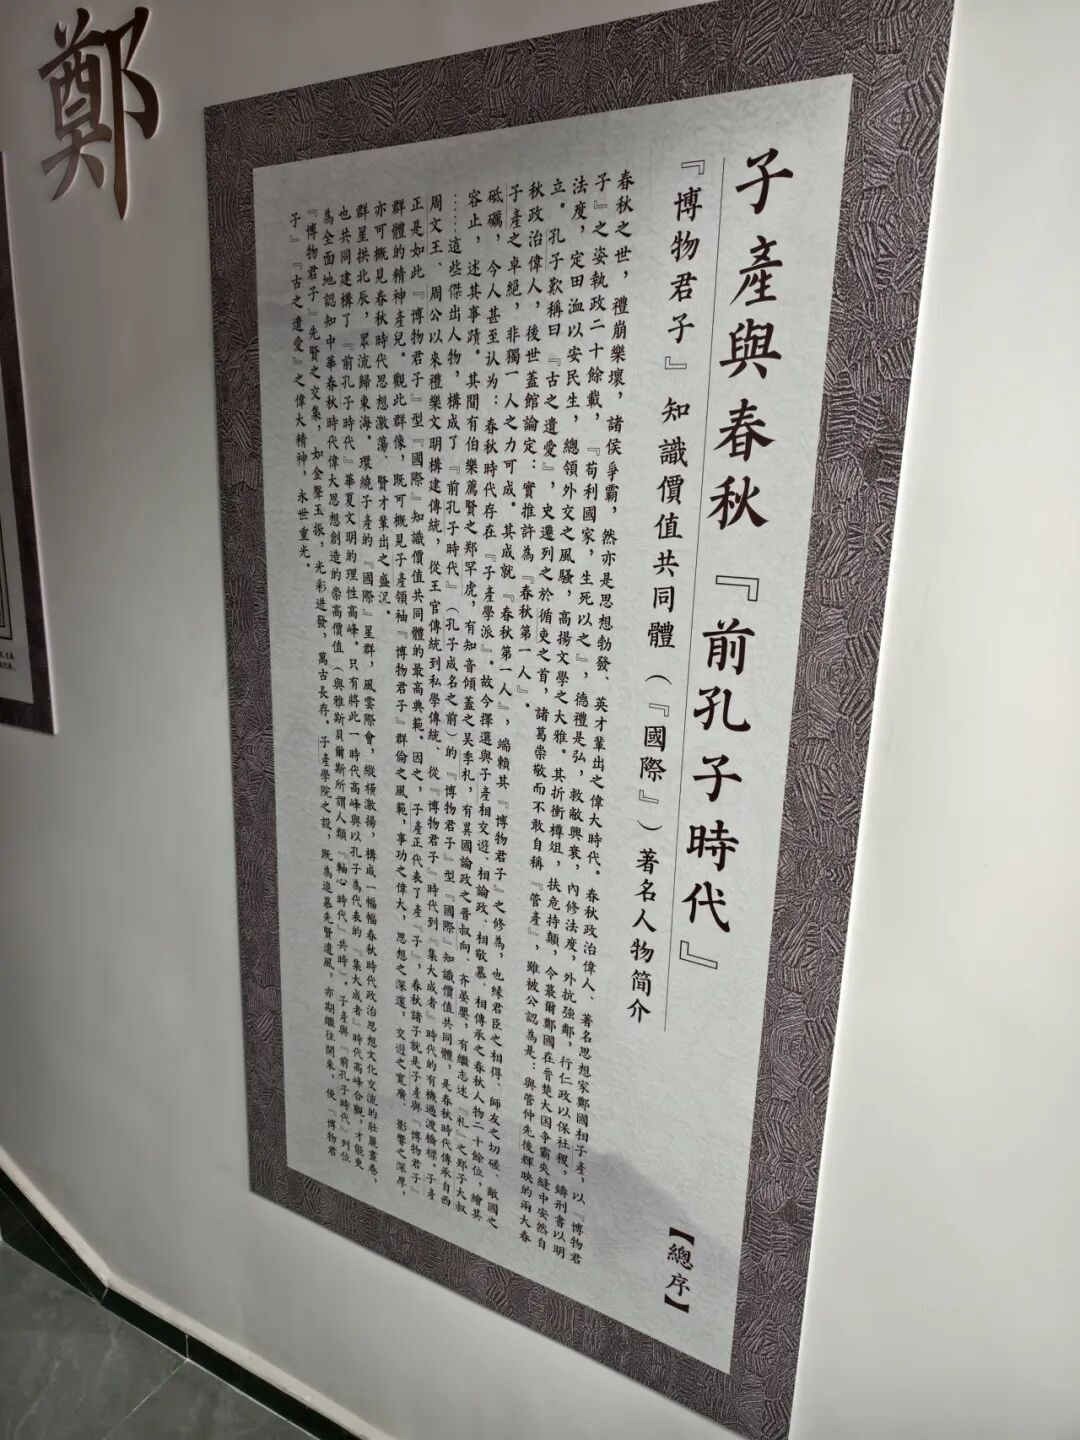 鄭
子產與春秋『前孔子時代』
『博物君子』知識價值共同體（『國際』）著名人物簡介
【總序】
春秋之世，禮崩樂壞，諸侯爭霸，然亦是思想勃發、英才輩出之偉大時代。春秋政治偉人、著名思想家鄭國相子產，以『博物君
子』之姿執政二十餘載，『苟利國家，生死以之』，德禮是弘，救敝興衰，內修法度，外抗強鄰，行仁政以保社稷，鑄刑書以明
法度，定田洫以安民生，總領外交之風騷，高揚文學之大雅。其折衝樽俎，扶危持顛，令蕞爾鄭國在晉楚大国争霸夾縫中安然自
立。孔子歎稱曰『古之遺愛』，史遷列之於循吏之首，諸葛崇敬而不敢自稱『管產』，雖被公認為是：與管仲先後輝映的兩大春
秋政治偉人，後世蓋館論定：實推許為『春秋第一人』。
子產之卓絕，非獨一人之力可成。其成就『春秋第一人』，端賴其『博物君子』之修為，也緣君臣之相得、師友之切磋、敵國之
砥礪，今人甚至认为：春秋時代存在『子產學派』。故今擇選與子產相交遊、相論政、相敬慕、相傳承之春秋人物二十餘位，繪其
容止，述其事蹟。其間有伯樂薦賢之郑罕虎，有知音傾蓋之吴季札，有異國論政之晉叔向、齐晏嬰，有繼志述『礼』之郑子大叔
……這些傑出人物，構成了『前孔子時代』（孔子成名之前）的『博物君子』型『國際』知識價值共同體，是春秋時代傳承自西
周文王、周公以來禮樂文明構建傳統，從王官傳統到私學傳統、從『博物君子』時代到『集大成者』時代的有機過渡橋樑。子產
正是如此『博物君子』型『國際』知識價值共同體的最高典範。因之，子產正代表了產『子』，春秋諸子就是子產與『博物君子』
群體的精神產兒。觀此群像，既可概見子產領袖『博物君子』群倫之風範，事功之偉大，思想之深邃，交遊之寬廣，影響之深厚，
亦可概見春秋時代思想激荡、賢才輩出之盛況。
群星拱北辰，眾流歸東海。環繞子產的『國際』星群，風雲際會，縱橫激揚，構成一幅幅春秋時代政治思想文化交流的壯麗畫卷，
也共同建構了『前孔子時代』華夏文明的理性高峰。只有將此一時代高峰與以孔子為代表的『集大成者』時代高峰合觀，才能更
為全面地認知中華春秋時代偉大思想創造的崇高價值（與雅斯贝爾斯所謂人類『軸心時代』共時）。子產與『前孔子時代』列位
『博物君子』先賢之交集，如金聲玉振，光彩迸發，萬古長存。子產學院之設，既為追慕先賢遺風，亦期繼往開來，使『博物君
子』『古之遺愛』之偉大精神，永世重光。